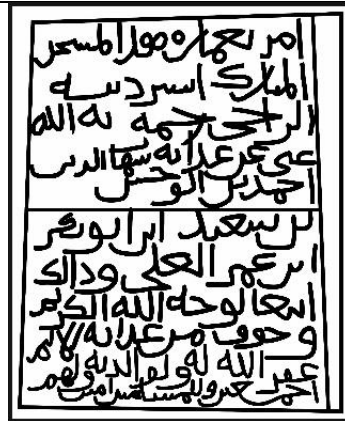 امر بعمارة هذا المسجد
المبارك
الراجي رحمة ربه الله
عن عذابه شهاب الدين
احمد بن الوحش
بن سعيد ابن ابو بكر
ابن عمر العلي وذلك
ابتغا لوجه الله الكريم
وخوف من عذابه الاليم
غفر الله له ولوالديه ولهم
اجمعين وللمسلمين امين